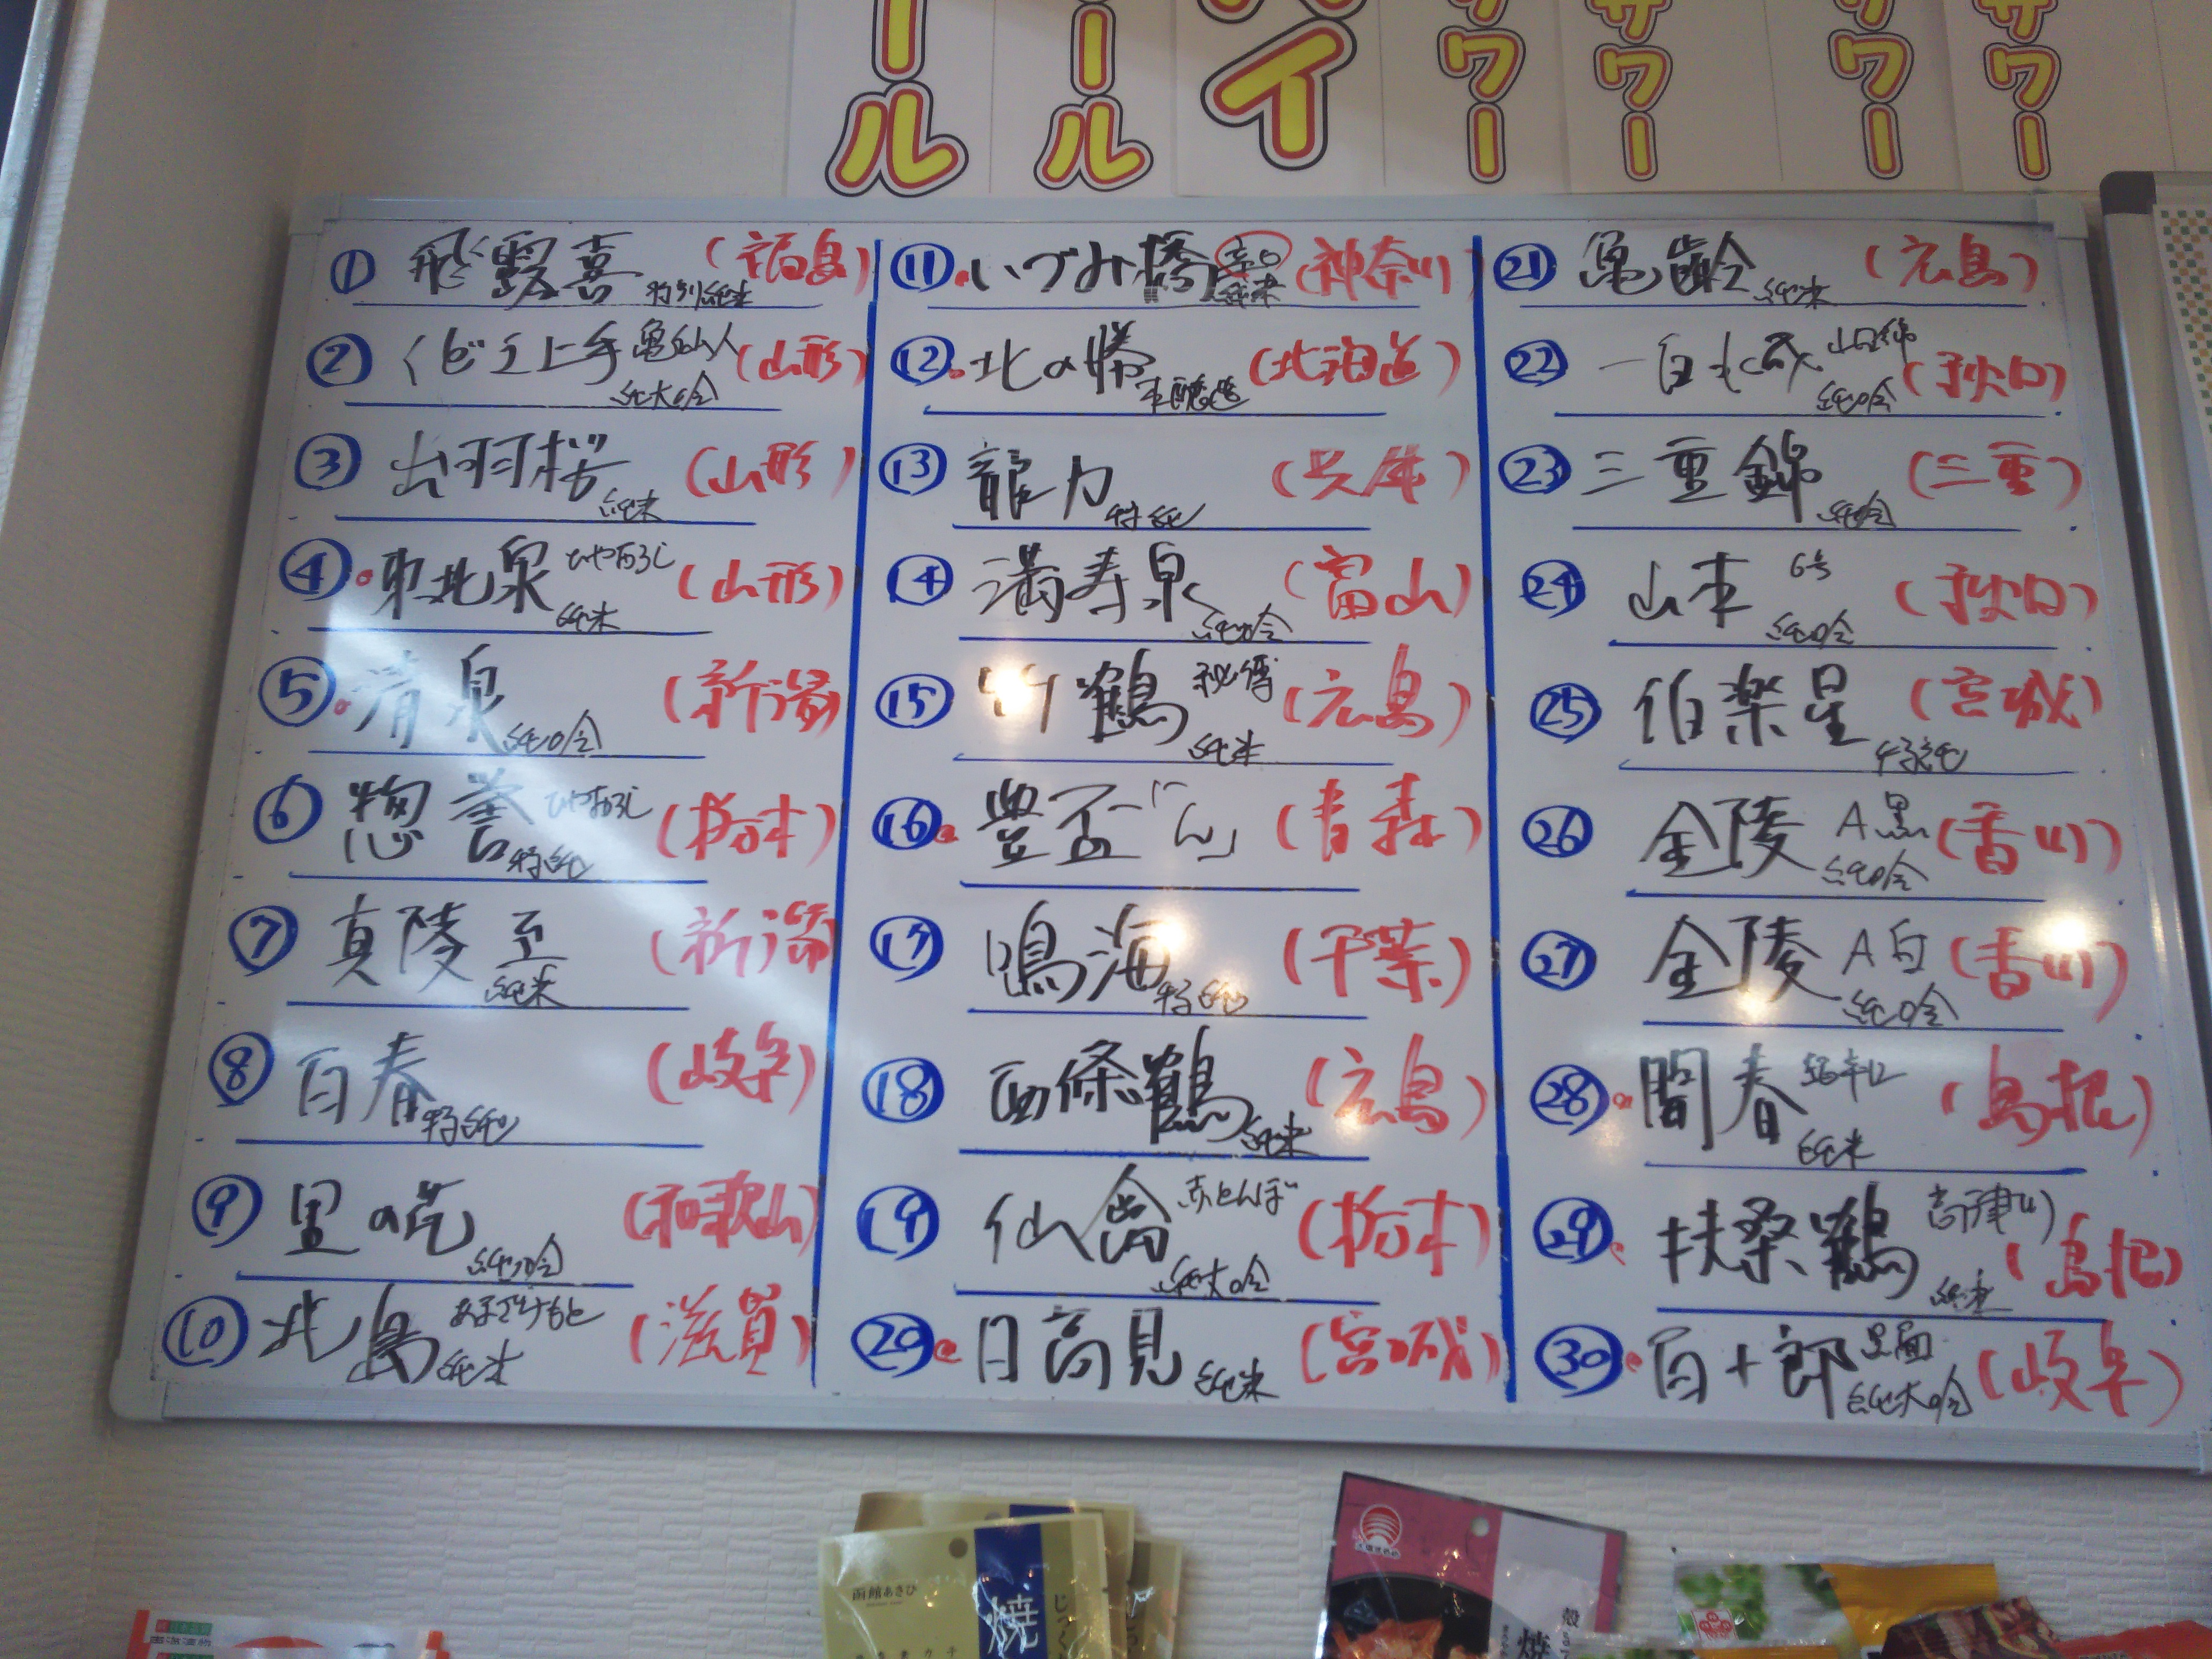 ール
ール
ハイ
サワー
サワー
サワー
サワー
① 飛露喜 特別純米 (福島)
② くどき上手 亀仙人 純大吟 (山形)
③ 出羽桜 純米 (山形)
④ 東北泉 ひやおろし 純米 (山形)
⑤ 清泉 純吟 (新潟)
⑥ 惣誉 ひやおろし 特純 (栃木)
⑦ 真陵 至 純米 (新潟)
⑧ 百春 特純 (岐阜)
⑨ 里の花 純吟 (和歌山)
⑩ 北島 あまざけもと 純米 (滋賀)
⑪ いづみ橋 辛口 純米 (神奈川)
⑫ 北の勝 本醸造 (北海道)
⑬ 龍力 特純 (兵庫)
⑭ 満寿泉 純吟 (富山)
⑮ 竹鶴 秘傳 純米 (広島)
⑯ 豊盃「ん」 (青森)
⑰ 鳴海 特純 (千葉)
⑱ 西條鶴 純米 (広島)
⑲ 仙禽 赤とんぼ 純大吟 (栃木)
⑳ 日高見 純米 (宮城)
㉑ 亀齢 純米 (広島)
㉒ 一白水成 山田錦 純吟 (秋田)
㉓ 三重錦 純吟 (三重)
㉔ 山本 6号 純吟 (秋田)
㉕ 伯楽星 特純 (宮城)
㉖ 金陵 A黒 純吟 (香川)
㉗ 金陵 A白 純吟 (香川)
㉘ 開春 超辛口 純米 (島根)
㉙ 扶桑鶴 高津川 純米 (島根)
㉚ 百十郎 黒面 純大吟 (岐阜)
函館あさひ
焼
じっく
焼